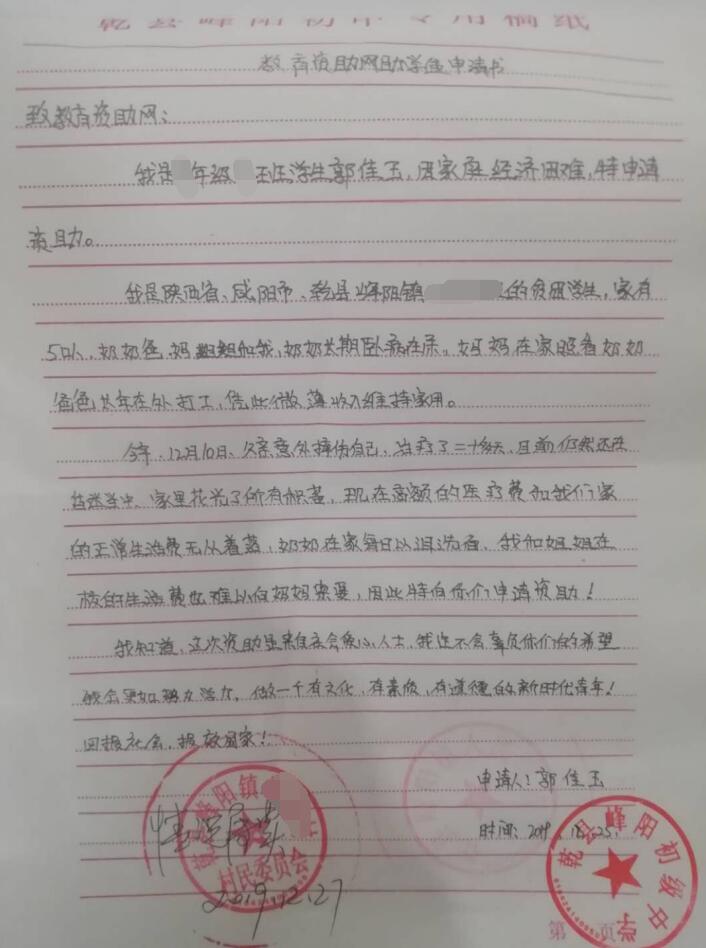 乾县峰阳初中专用稿纸
教育资助网助学金申请书
致教育资助网：
我是 年级 班学生郭佳玉，因家庭经济困难，特申请
资助。
我是陕西省、咸阳市、乾县峰阳镇 的贫困学生，家有
5口人，奶奶爸妈姐姐和我，奶奶长期卧病在床，妈妈在家照看奶奶
爸爸长年在外打工，凭此微薄收入维持家用。
今年，12月10日、父亲意外摔伤自己，治疗了二十多天，目前仍然还在
当中、家里花光了所有积蓄，现在高额的医疗费和我们家
的正常生活费无从着落，奶奶在家每日以泪洗面，我和姐姐在
校的生活费也难以向妈妈索要，因此特向你们申请资助！
我知道，这次资助是来自社会爱心人士，我决不会辜负你们的希望
我会更加努力 ，做一个有文化，有素质，有道德的新时代青年！
回报社会，报效国家！
申请人：郭佳玉
时间：2019.12.25.
情况属实
峰阳镇
村民委员会
2019.12.27
乾县峰阳初级中学
第 页